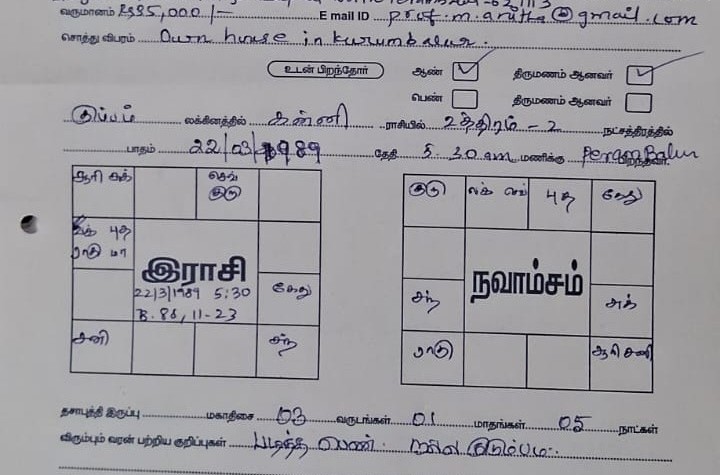 வருமானம் 85,000/- E mail ID prof.m.anitha@gmail.com
சொத்து விபரம் Own house in kurumbalur.
உடன் பிறந்தோர் ஆண் திருமணம் ஆனவர்
பெண் திருமணம் ஆனவர்
கும்பம் லக்கினத்தில் கன்னி ராசியில் உத்திரம் - 2 நட்சத்திரத்தில்
பாதம் 22/03/1989 தேதி 5.30 am மணிக்கு Perambalur பிறந்தவர்.
ஆரி சுக் செவ் குரு குரு லக் செவ் புத கேது
லக் புத ராகு மா
இராசி நவாம்சம்
22/3/1989 5:30 கேது சந் சுக்
B. 86, 11-23
சனி சந் ராகு ஆரி சனி
தசாபுத்தி இருப்பு மகாதிசை 03 வருடங்கள் 01 மாதங்கள் 05 நாட்கள்
விரும்பும் வரன் பற்றிய குறிப்புகள் படித்த பெண். நல்ல குடும்பம்.